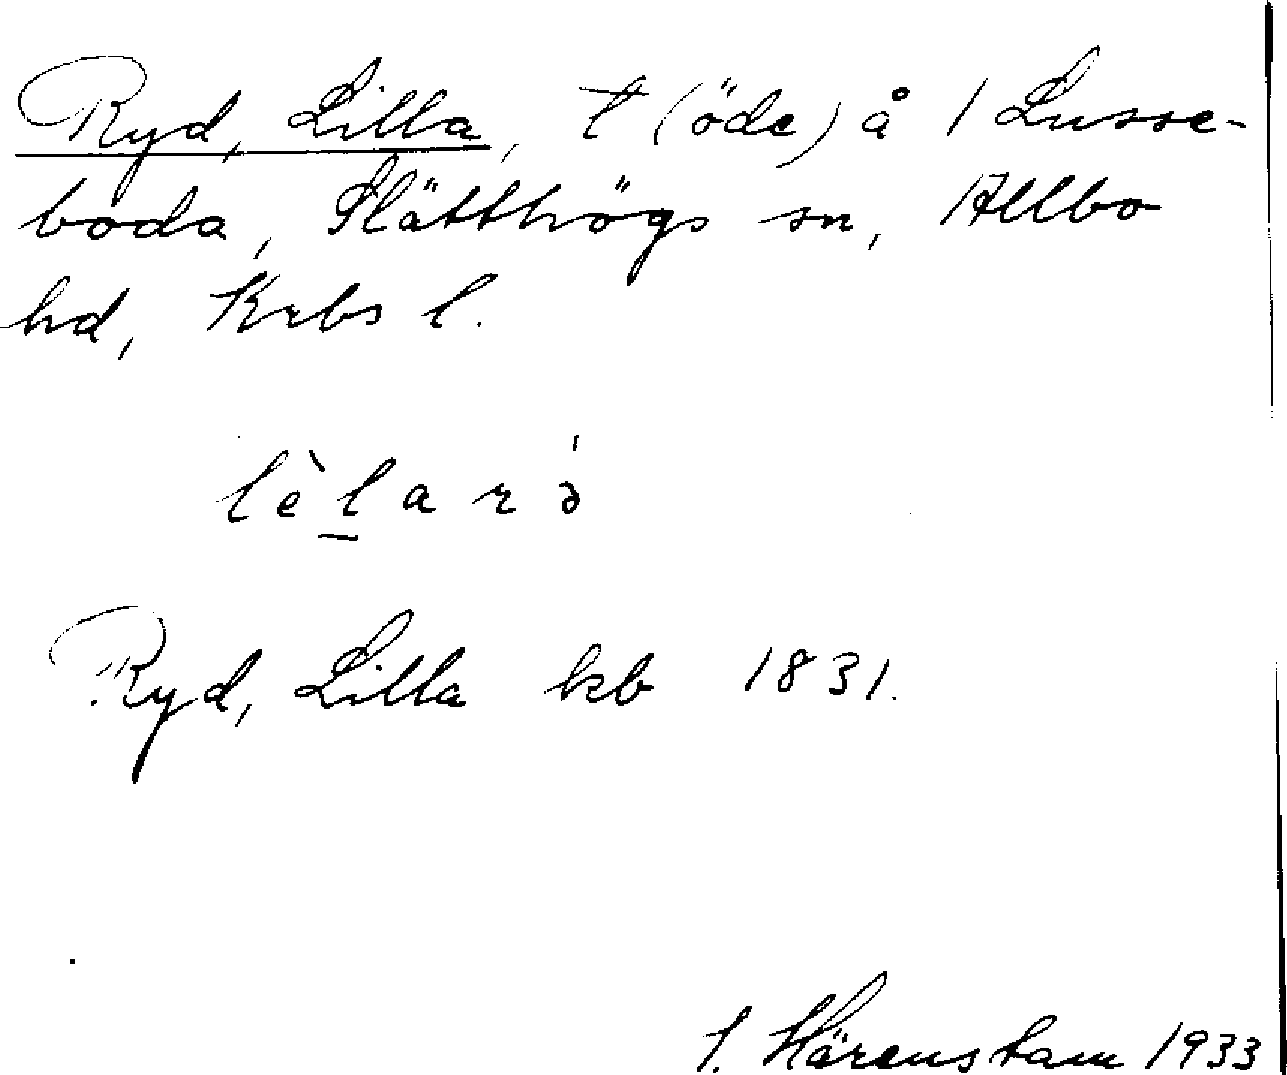 Ryd, Lilla, t (öde) å / Lusse-
boda, Slätthögs sn, Allbo
hd, Krbs l.
lèlarə́
Ryd, Lilla kb 1831.
Härenstam 1933